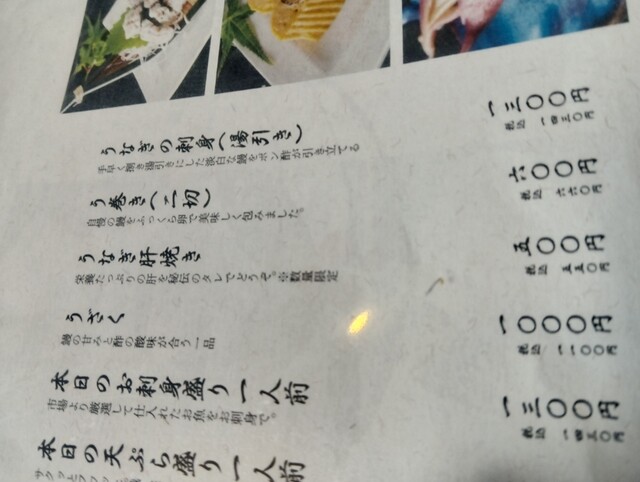 うなぎの刺身（湯引き）
手早く捌き湯引きにした淡白な鰻をポン酢が引き立てる
一三〇〇円
税込 一四三〇円
う巻き（二切）
自慢の鰻をふっくら卵で美味しく包みました。
六〇〇円
税込 六六〇円
うなぎ肝焼き
栄養たっぷりの肝を秘伝のタレでどうぞ。※数量限定
五〇〇円
税込 五五〇円
うざく
鰻の甘みと酢の酸味が合う一品
一〇〇〇円
税込 一一〇〇円
本日のお刺身盛り一人前
市場より厳選して仕入れたお魚をお刺身で。
一三〇〇円
税込 一四三〇円
本日の天ぷら盛り一人前